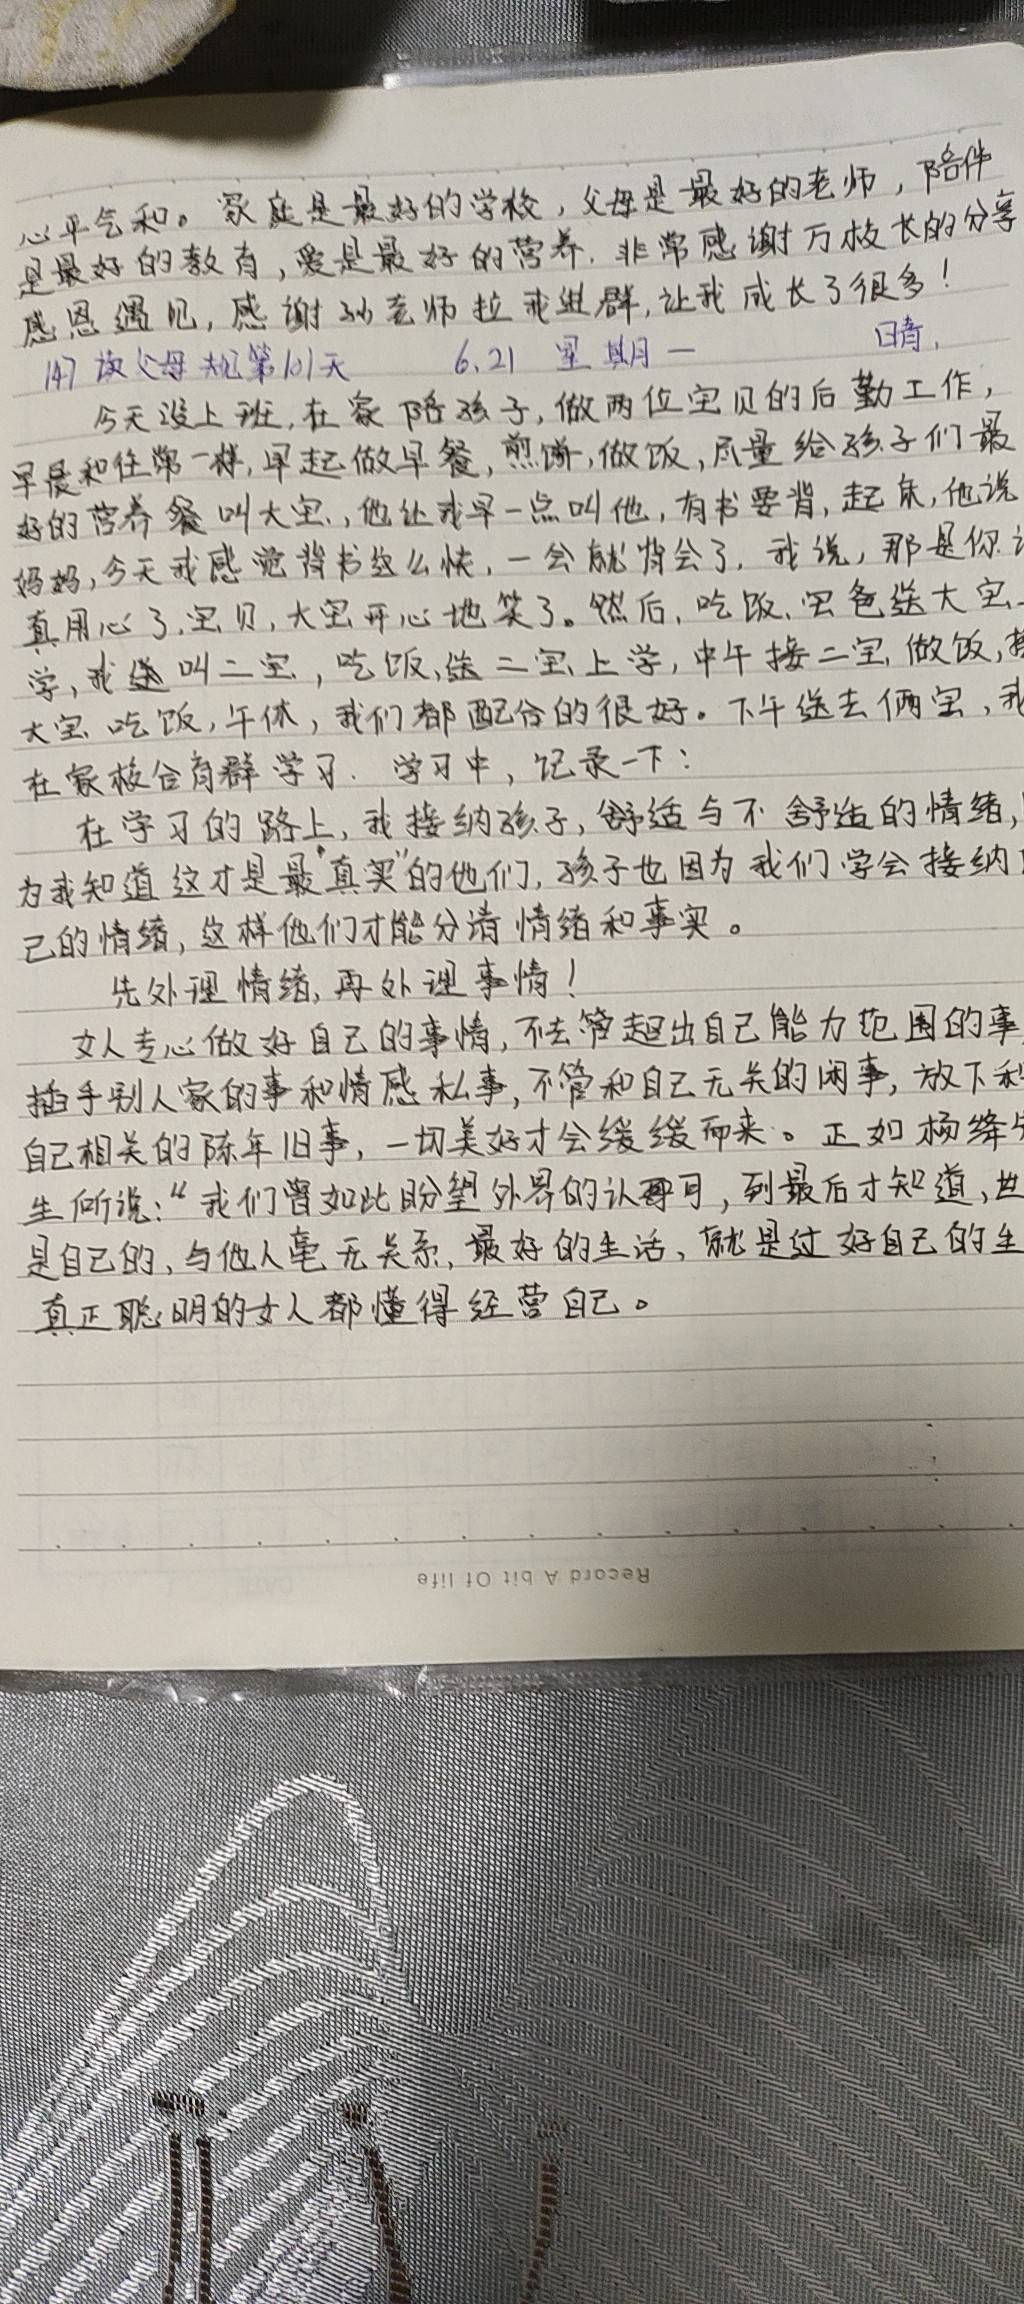 心平气和。家庭是最好的学校，父母是最好的老师，陪伴
是最好的教育，爱是最好的营养. 非常感谢万校长的分享
感恩遇见，感谢孙老师拉我进群，让我成长了很多！
147 读父母规第101天 6.21 星期一 晴.
今天没上班，在家陪孩子，做两位宝贝的后勤工作，
早晨和往常一样，早起做早餐，煎饼，做饭，尽量给孩子们最
好的营养餐叫大宝，他让我早一点叫他，有书要背，起床，他说
妈妈，今天我感觉背书这么快，一会就背会了，我说，那是你
真用心了，宝贝，大宝开心地笑了。然后，吃饭，宝爸送大宝
学，我送叫二宝，吃饭，送二宝上学，中午接二宝，做饭，
大宝吃饭，午休，我们都配合的很好。下午送去俩宝，我
在家校合育群学习. 学习中，记录一下：
在学习的路上，我接纳孩子，舒适与不舒适的情绪，
为我知道这才是最“真实”的他们，孩子也因为我们学会接纳
己的情绪，这样他们才能分清情绪和事实。
先处理情绪，再处理事情！
女人专心做好自己的事情，不去管超出自己能力范围的事
插手别人家的事和情感私事，不管和自己无关的闲事，放下和
自己相关的陈年旧事，一切美好才会缓缓而来。正如杨绛
生所说：“我们曾如此盼望外界的认可，到最后才知道，世
是自己的，与他人毫无关系，最好的生活，就是过好自己的生
真正聪明的女人都懂得经营自己。
Record A bit Of life